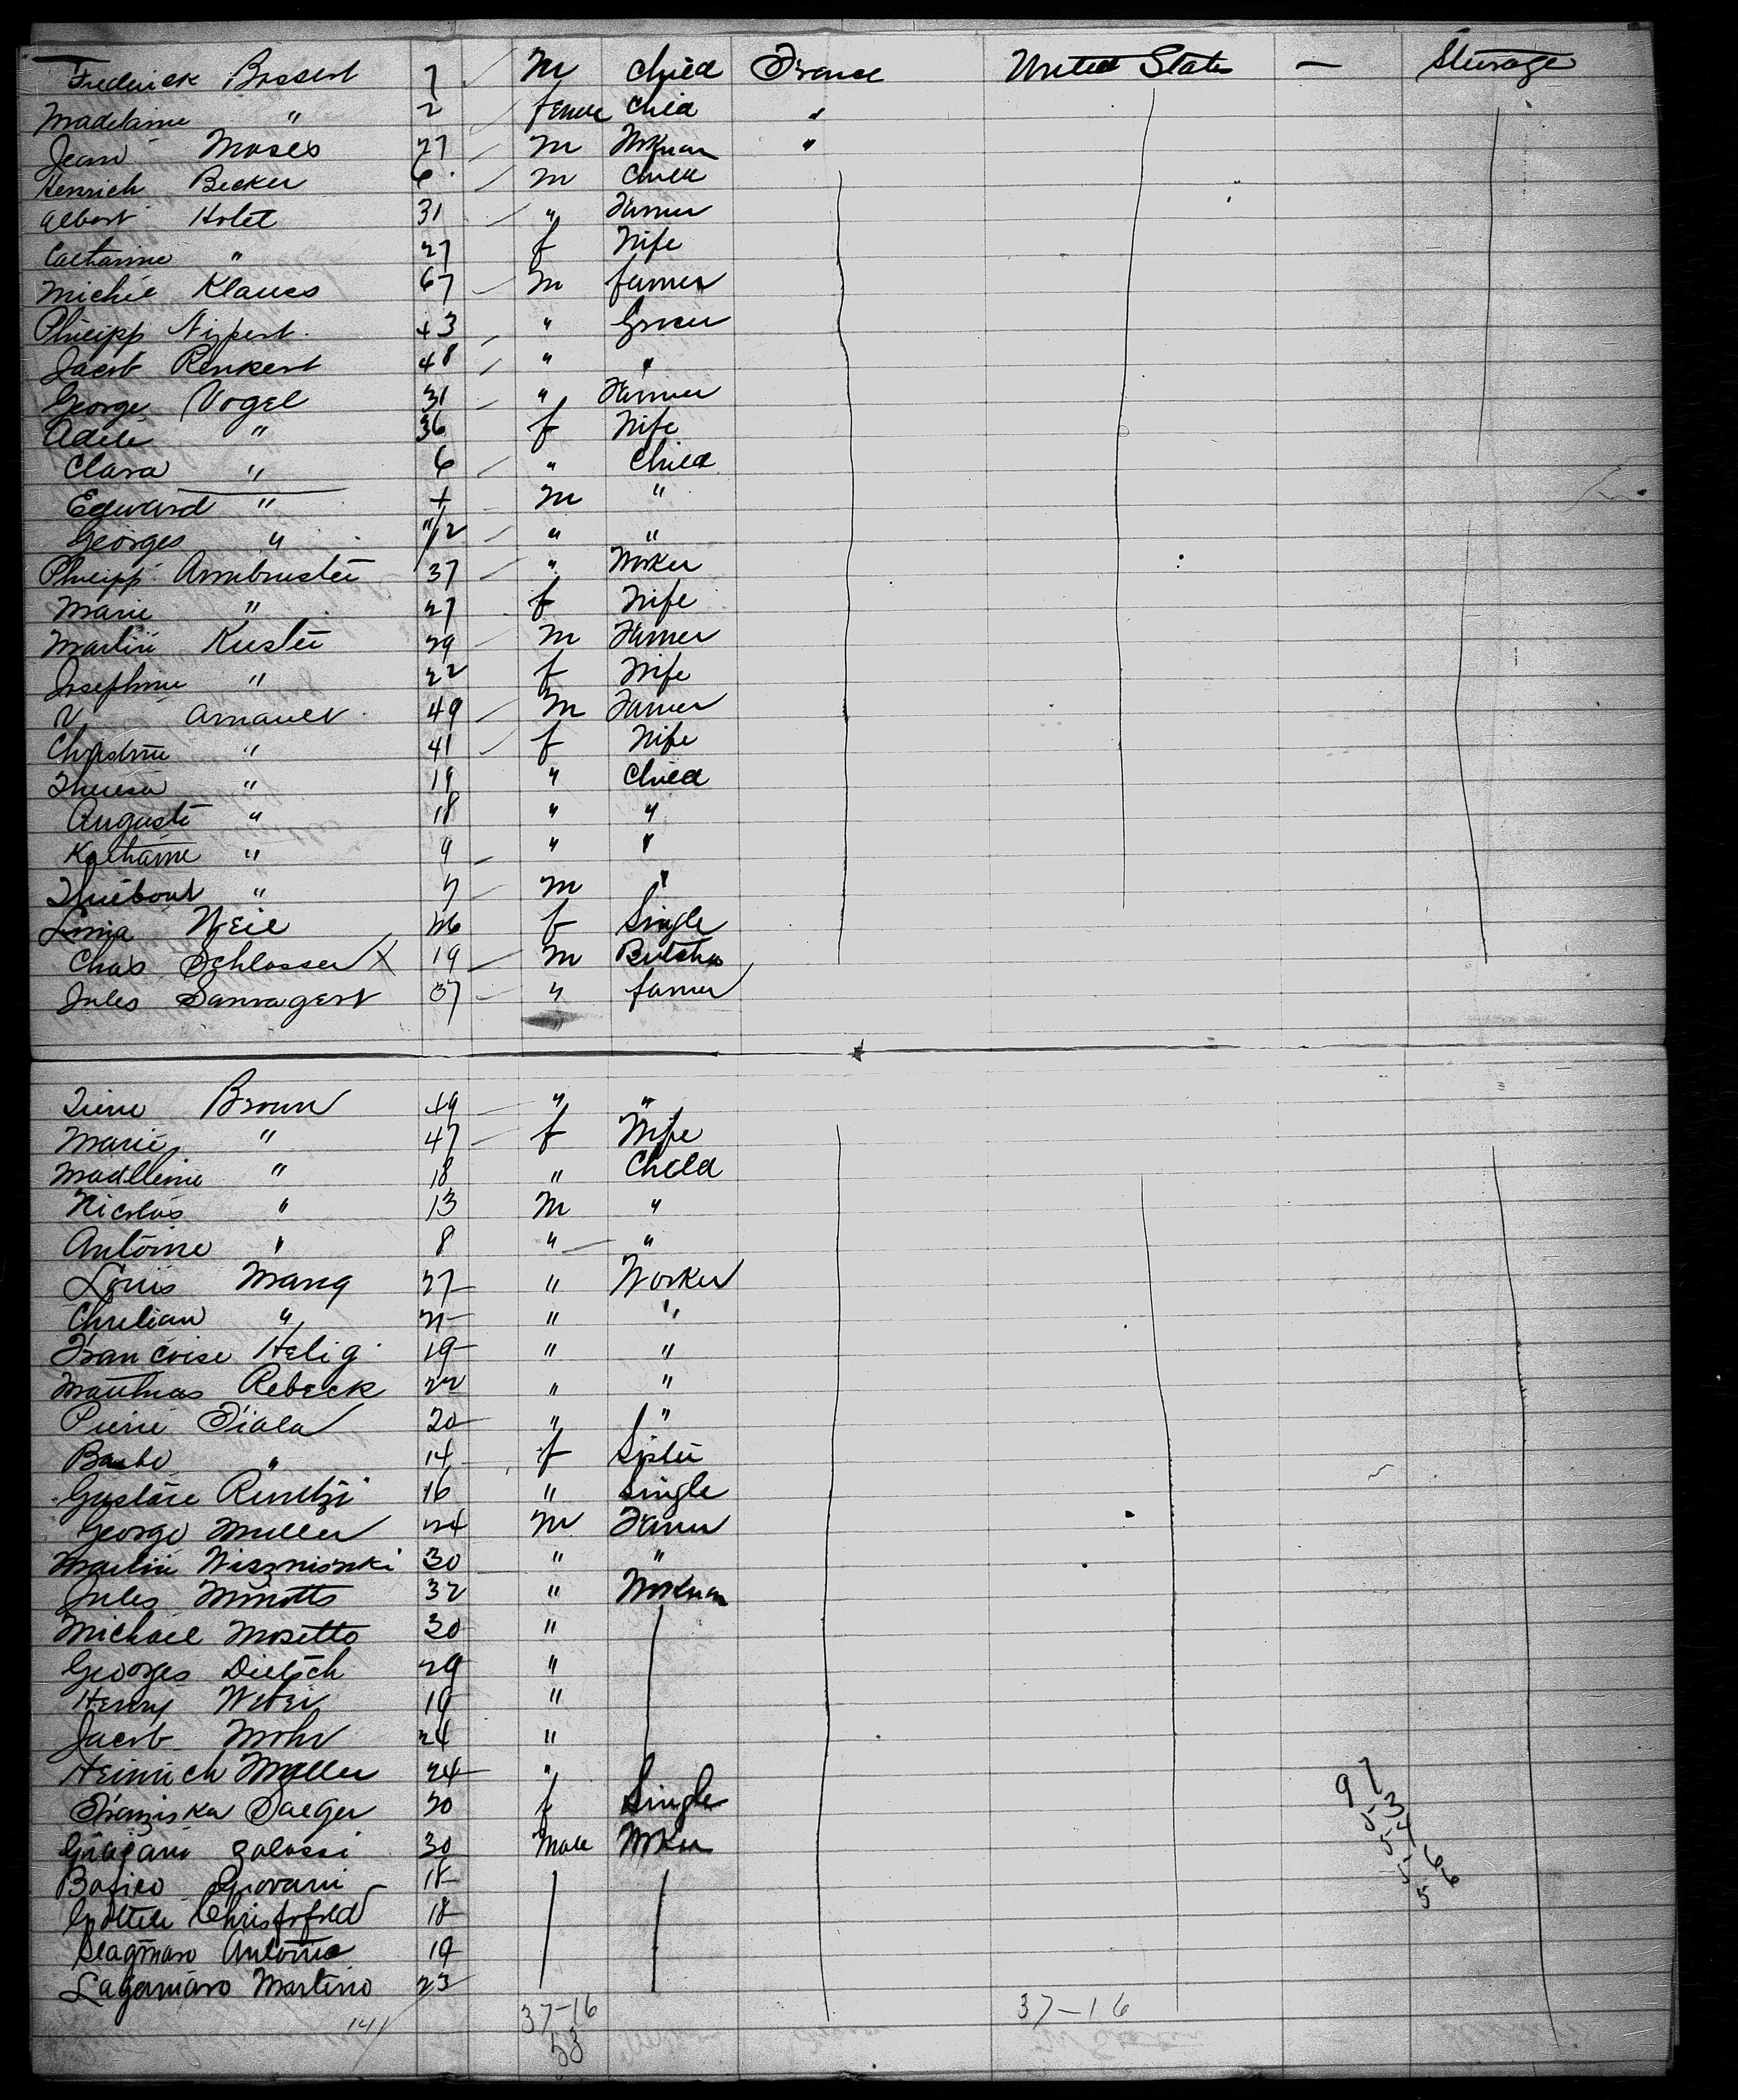 Frederick Bossert 7 M Child France United States — Steerage
Madelaine " 2 female Child "
Jean Moses 27 M Wkman "
Henrich Becker 6 M Child
Albert Holet 31 " Farmer
Catharine " 27 f Wife
Michel Klauss 67 M farmer
Philipp Nippert 43 " Grocer
Jacob Renkert 48 " "
George Vogel 31 " Farmer
Adele " 36 f Wife
Clara " 6 " Child
Edward " 4 M "
Georges " 11/12 " "
Philipp Armbruster 37 " Worker
Marie " 27 f Wife
Martin Kuster 29 M Farmer
Josephine " 22 f Wife
V Arnault 49 M Farmer
Christine " 41 f Wife
Theresa " 19 " Child
Auguste " 18 " "
Katharine " 9 " "
Thiebout " 7 M "
Weil 26 f Single
Chas Schlosser X 19 M Butcher
Jules 37 " farmer
Brown 49 " "
Marie " 47 f Wife
Madlleine " 18 " Child
Nicolas " 13 M "
Antoine " 8 " "
Louis Mang 27 " Worker
Christian " 21 " "
Francoise Helig 19 " "
Matthias Rebeck 22 " "
Pierre Fiala 20 " "
Barbe " 14 f Sister
Gustave 16 " Single
George Muller 24 M Farmer
Martin Wiszniswki 30 " "
Jules Minotto 32 " Workman
Michael Mosetto 30 "
Georges Dietsch 29 "
Henry Weber 19 "
Jacob Mohr 24 "
Heinrich Muller 24 "
Franziska Saeger 20 f Single
Zalassi 30 Male Worker
Bafico Giovani 18
Christofold 18
Antonio 19
Lagomaro Martino 23
141 37-16 37-16
53
97
53
54
56
56